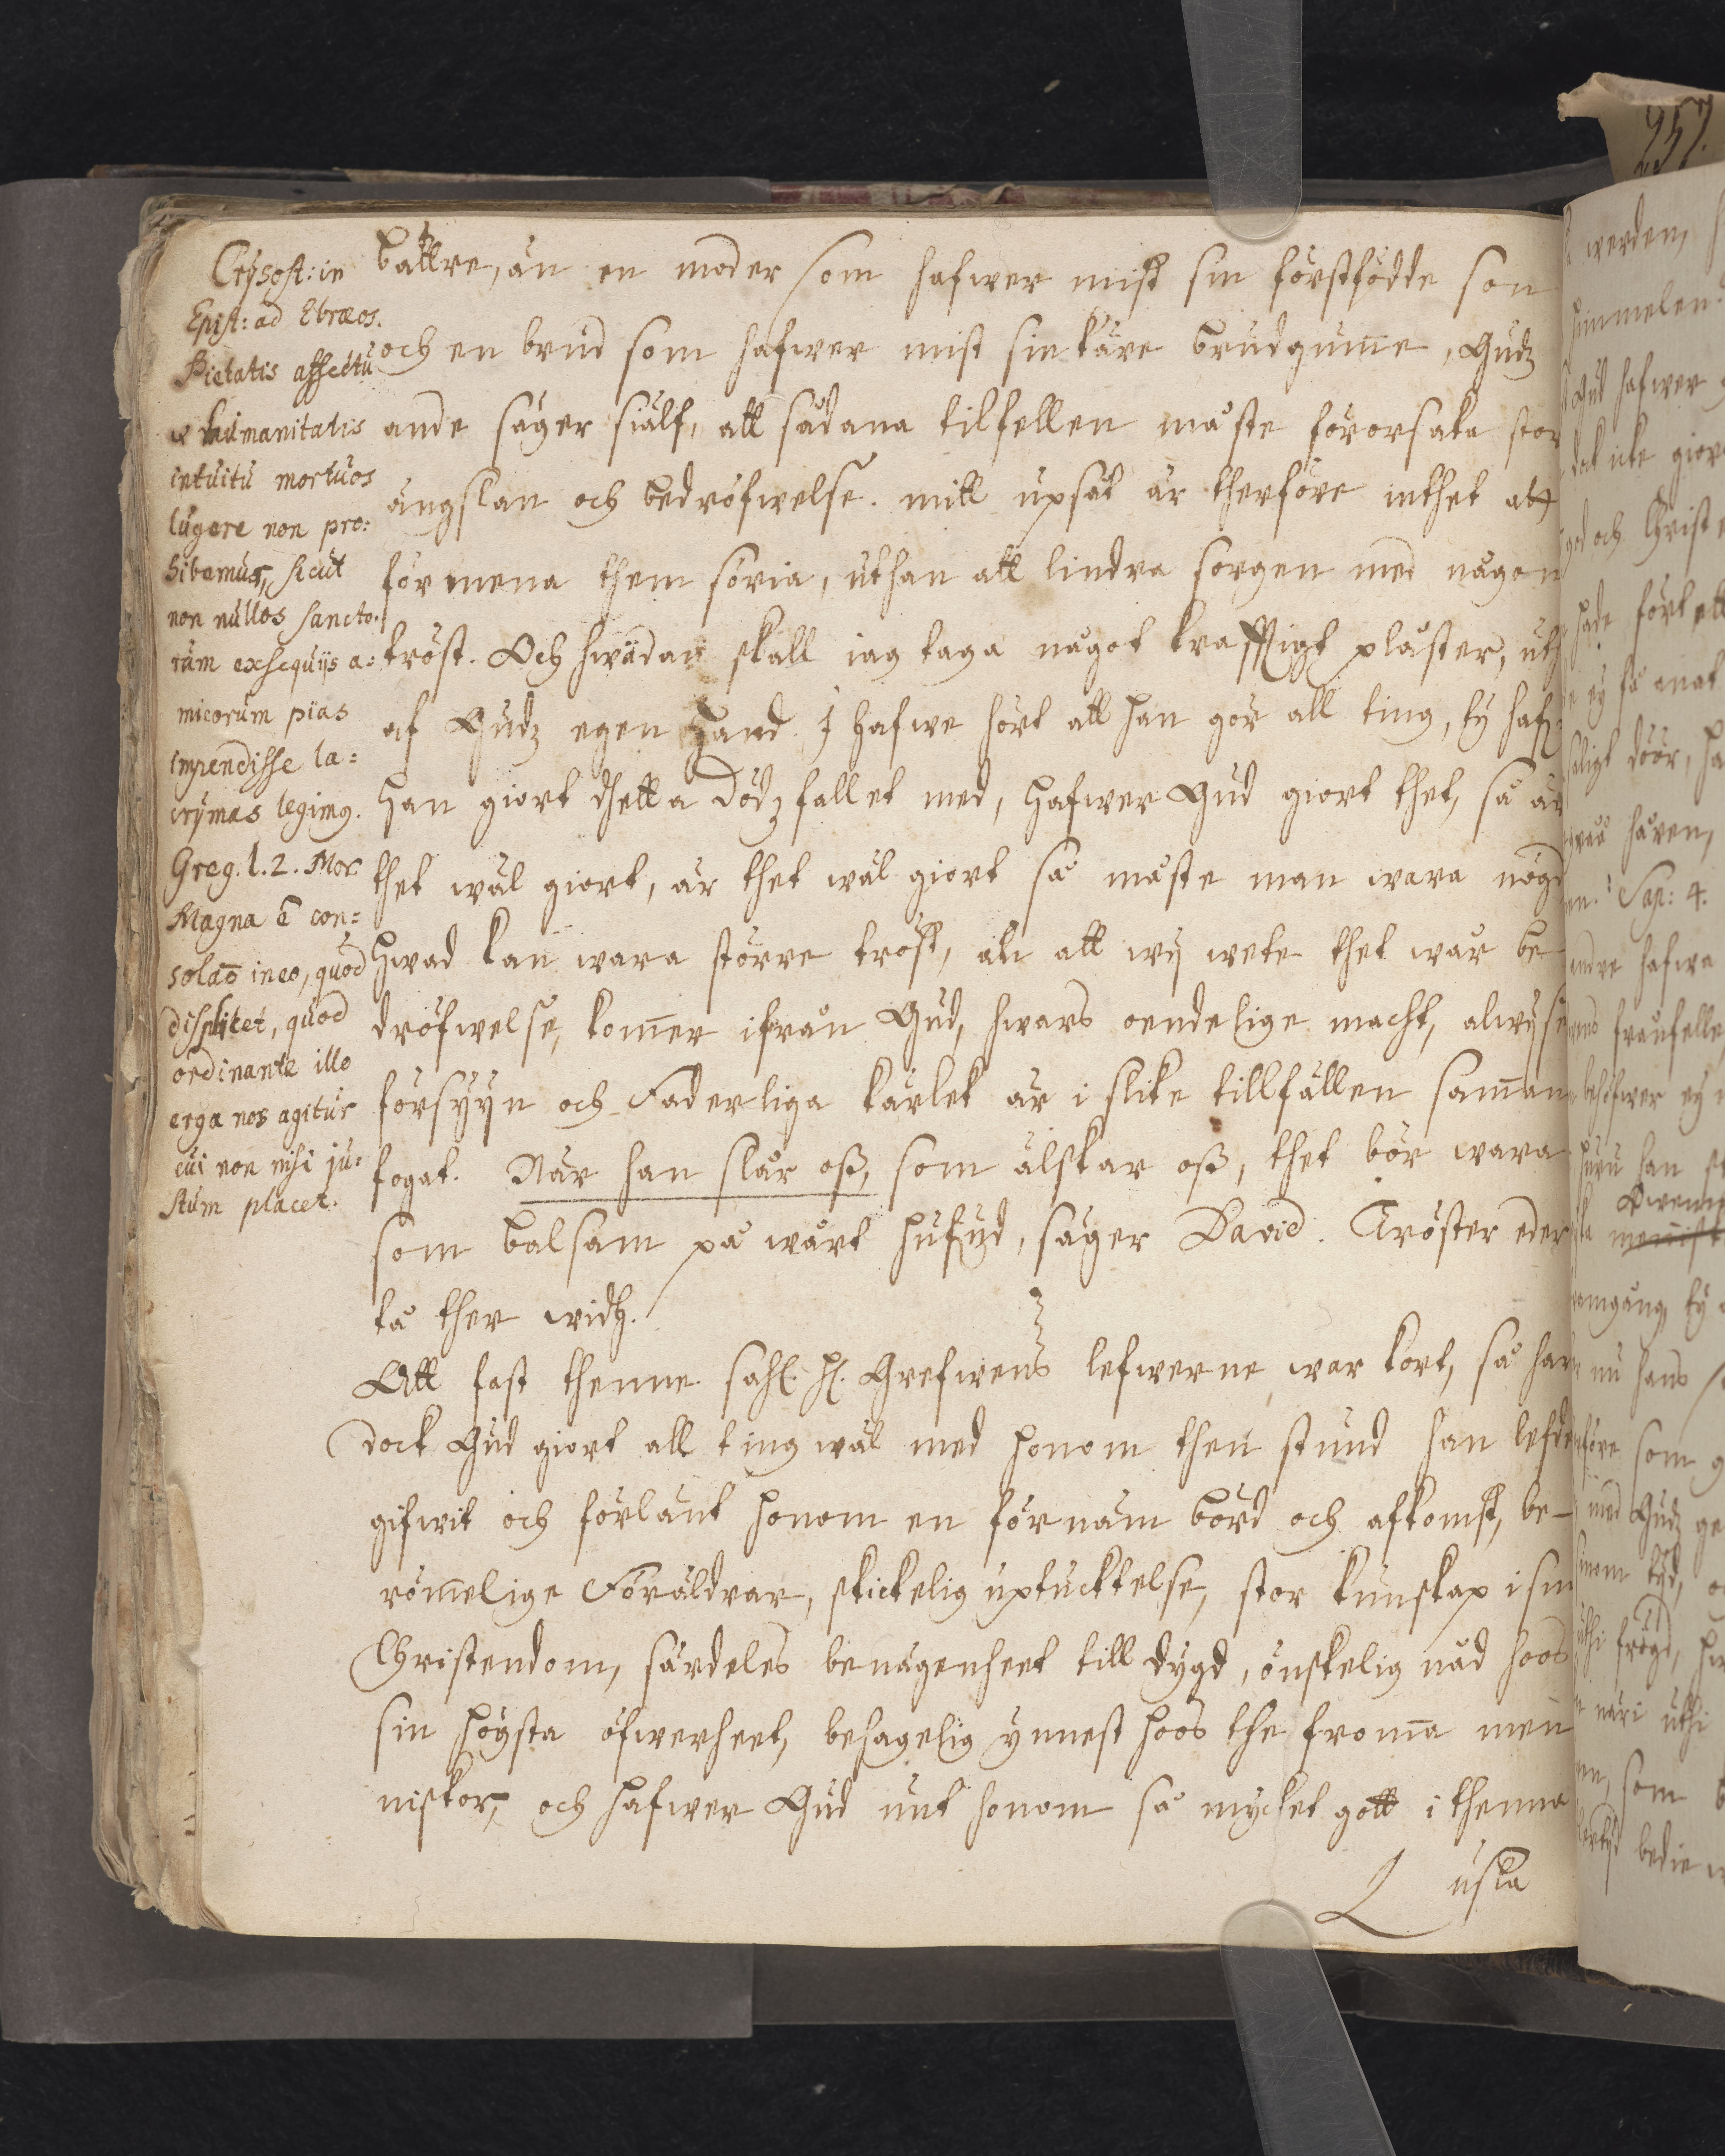 Crysost: in
Epist: ad Ebræos.
Pietatis affectu
& humanitatis
intuitu mortuos
lugere non pro:
hibemus, sicut
non nullos sancto:
rum exsequijs a:
micorum pias
impendisse la:
crymas legimg.
Greg. l. 2. Mor.
Magna ē con:
solaō in eo, quod
displicet, quod
ordinante illo
erga nos agitur
cui non nisi ju:
stum placet.
bättre, än en moder som hafwer mist sin förstfödde son
och en brud som hafwer mist sin käre brudgum̄e, Gudz
ande säger siälf, att sådana tilfellen måste förorsaka stor
ängslan och bedröfwelse. mitt upsåt är therföre inthet att
förmena them söria, uthan att lindra sorgen med någon
tröst. Och hwädan skall iag taga något krafftigt plåster, uth
af Gudz egen Hand. I hafwe hört att han gör all ting, ty haf:
han giort thetta dödzfallet med, hafwer Gud giort thet, så är
thet wäl giort, är thet wäl giort så måste man wara nögd
Hwad kan wara större tröst, än att wij wete thet wår be
dröfwelse, kom̄er ifrån Gud, hwars oendelige macht, alwijse
försÿÿn och Faderliga kärlek är i slike tillfällen sam̄an
fogat. När han slår oß, som älskar oß, thet bör wara
som balsam på wårt hufud, säger David. Tröster eder
tå ther widh.
Att fast thenne sahl. H. Grefwens lefwerne war kort, så har
dock Gud giort all ting wäl med honom then stund han lefde
gifwit och förlänt honom en förnäm börd och afkomst, be-
röm̄elige Föräldrar, skickelig uptucktelse, stor kunskap i sin
Christendom, särdeles benägenheet till dygd, önskelig nåd hoos
sin högsta öfwerheet, behagelig ynnest hoos the from̄a men
niskor, och hafwer Gud unt honom så mycket gott i thenna
usla
257.
werden,
himmelen
Gud hafwer
dock icke giort
och Christe
hade fört
ey få
döör,
håren,
Sap: 4.
hafwa
behöfwer ey
han
omgång, ty
nu hans
som
med Gudz
tijd,
frögd,
uthi
som
bedie